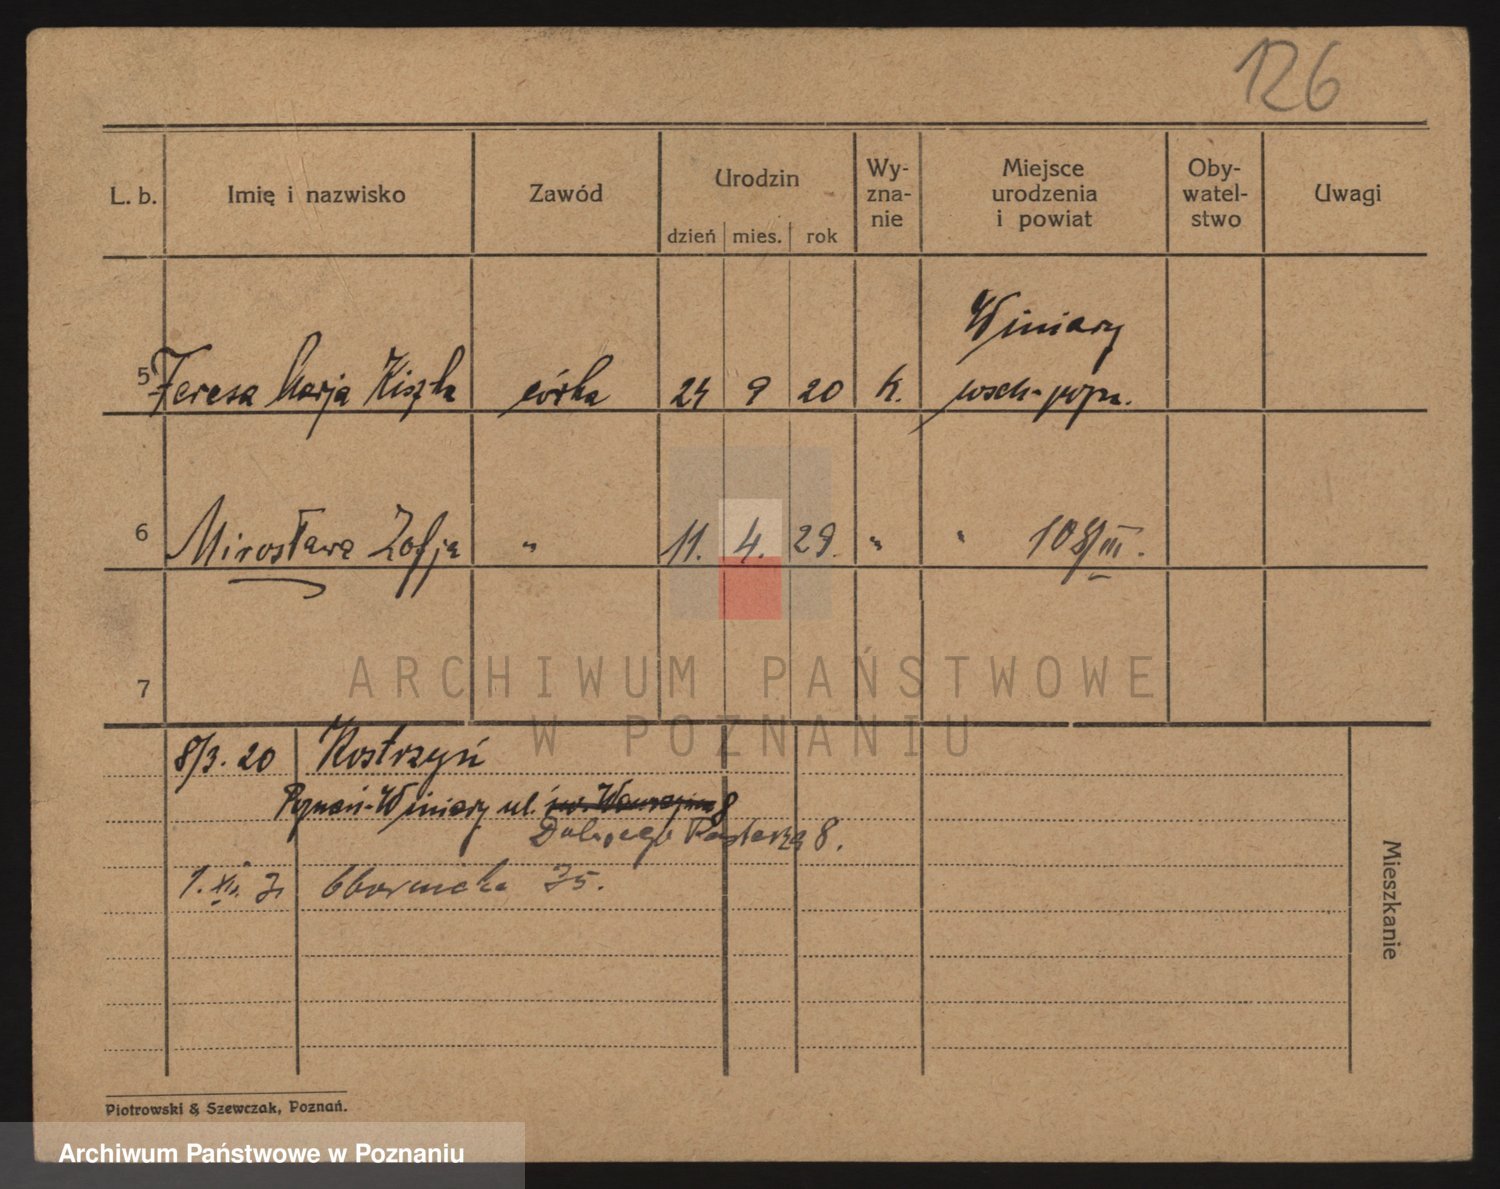 126
L. b. Imię i nazwisko Zawód Urodzin dzień mies. rok Wy-zna-nie Miejsce urodzenia i powiat Oby-watel-stwo Uwagi
Winiary
5 Teresa Marja Kiszka córka 24 9 20 k. wsch-pozn.
6 Mirosława Zofja " 11. 4. 29. " " 108/III.
7
ARCHIWUM PAŃSTWOWE
W POZNANIU
8/3. 20 Kostrzyń
Poznań-Winiary ul. św. Wawrzyńca 8
Dobrego Pasterza 8.
1. Obornicka 35.
Mieszkanie
Piotrowski & Szewczak, Poznań.
Archiwum Państwowe w Poznaniu